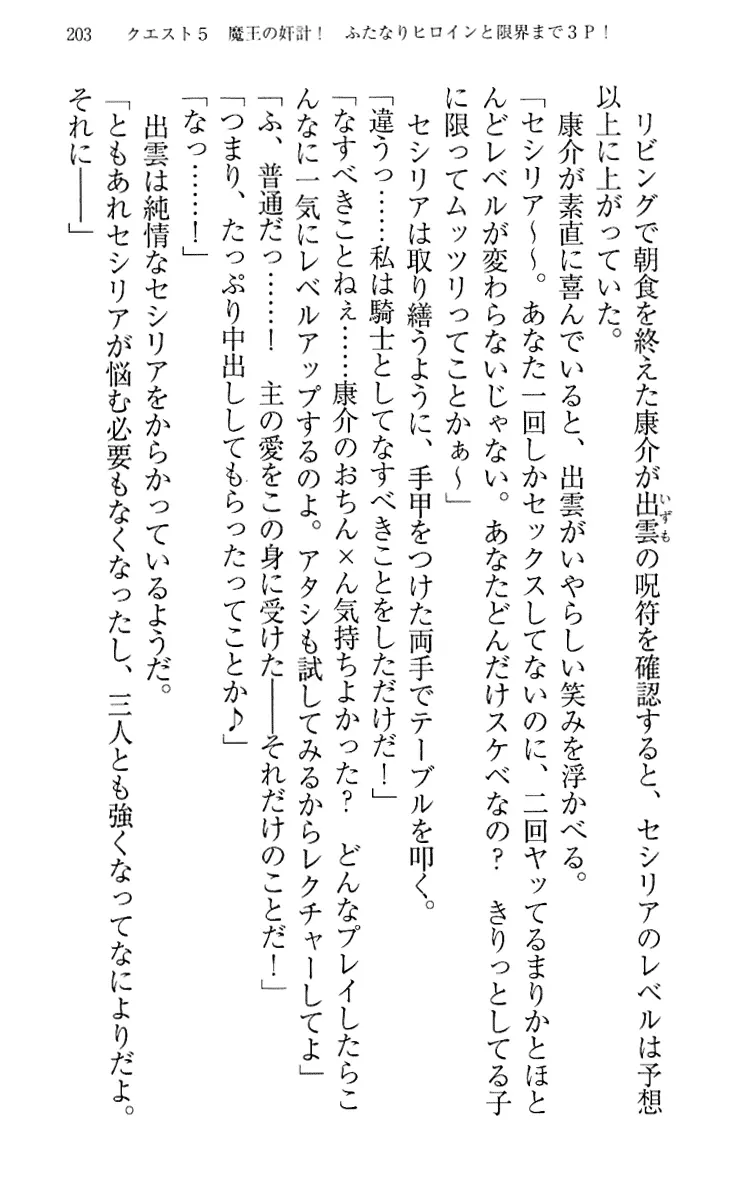 203　クエスト５　魔王の奸計！　ふたなりヒロインと限界まで３Ｐ！
　リビングで朝食を終えた康介が出雲の呪符を確認すると、セシリアのレベルは予想
いずも
以上に上がっていた。
　康介が素直に喜んでいると、出雲がいやらしい笑みを浮かべる。
「セシリア～～。あなた一回しかセックスしてないのに、二回ヤッてるまりかとほと
んどレベルが変わらないじゃない。あなたどんだけスケベなの？　きりっとしてる子
に限ってムッツリってことかぁ～」
　セシリアは取り繕うように、手甲をつけた両手でテーブルを叩く。
「違うっ……私は騎士としてなすべきことをしただけだ！」
「なすべきことねぇ……康介のおちん×ん気持ちよかった？　どんなプレイしたらこ
んなに一気にレベルアップするのよ。アタシも試してみるからレクチャーしてよ」
「ふ、普通だっ……！　主の愛をこの身に受けた――それだけのことだ！」
「つまり、たっぷり中出ししてもらったってことか♪」
「なっ……！」
　出雲は純情なセシリアをからかっているようだ。
「ともあれセシリアが悩む必要もなくなったし、三人とも強くなってなによりだよ。
それに――」